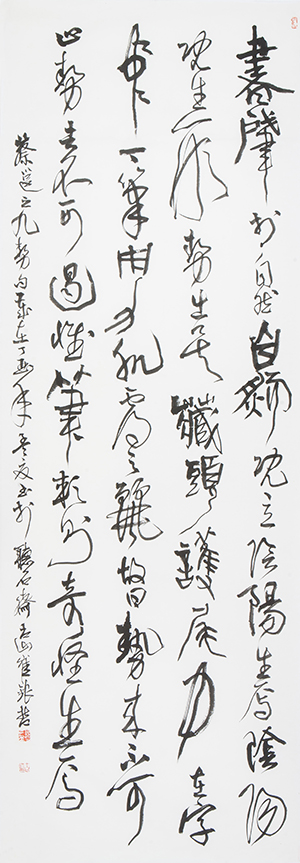 書肇於自然自然既立陰陽生焉陰陽
既生形勢出矣藏頭護尾力在字
中下筆用力肌膚之麗故曰勢來不可
止勢去不可遏惟筆軟則奇怪生焉
蔡邕之九勢句歲在丁酉年冬夜書於聽石齋